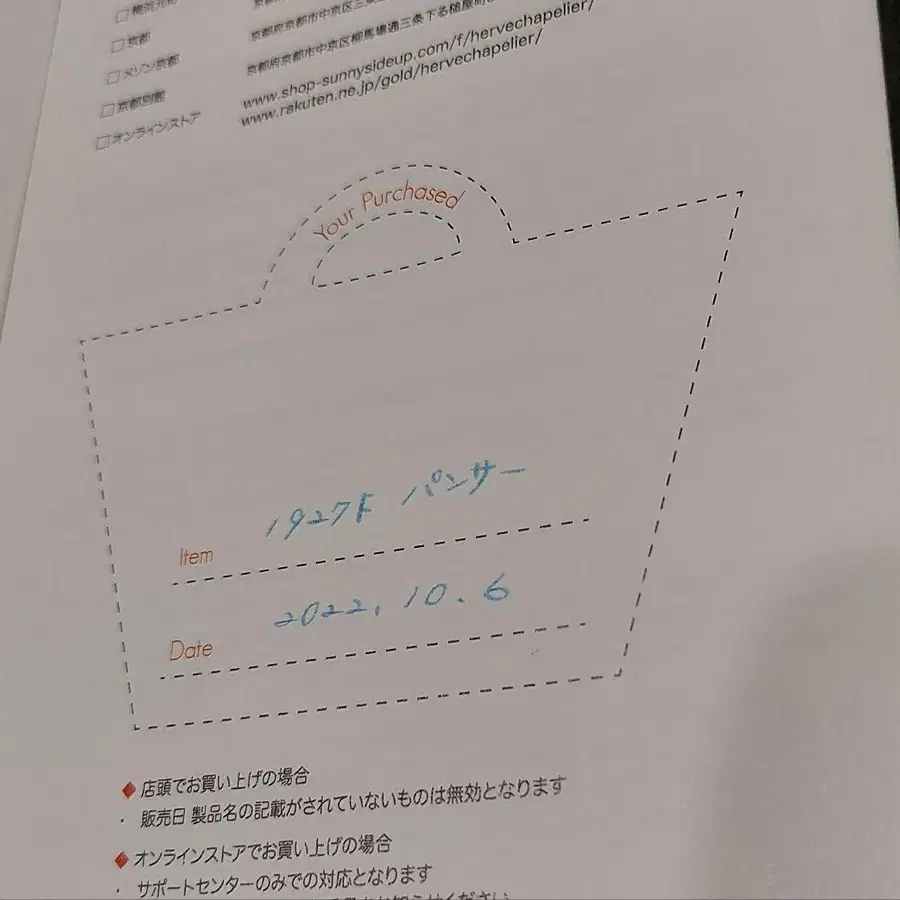 □ 京都
京都府京都市中京区三条
□ メゾン京都
京都府京都市中京区柳馬場通三条下る
□ 京都別館
www.shop-sunnysideup.com/f/hervechapelier/
□ オンラインストア
www.rakuten.ne.jp/gold/hervechapelier/
Your Purchased
Item 1927F パンサー
Date 2022.10.6
◆ 店頭でお買い上げの場合
・ 販売日 製品名の記載がされていないものは無効となります
◆ オンラインストアでお買い上げの場合
・ サポートセンターのみでの対応となります